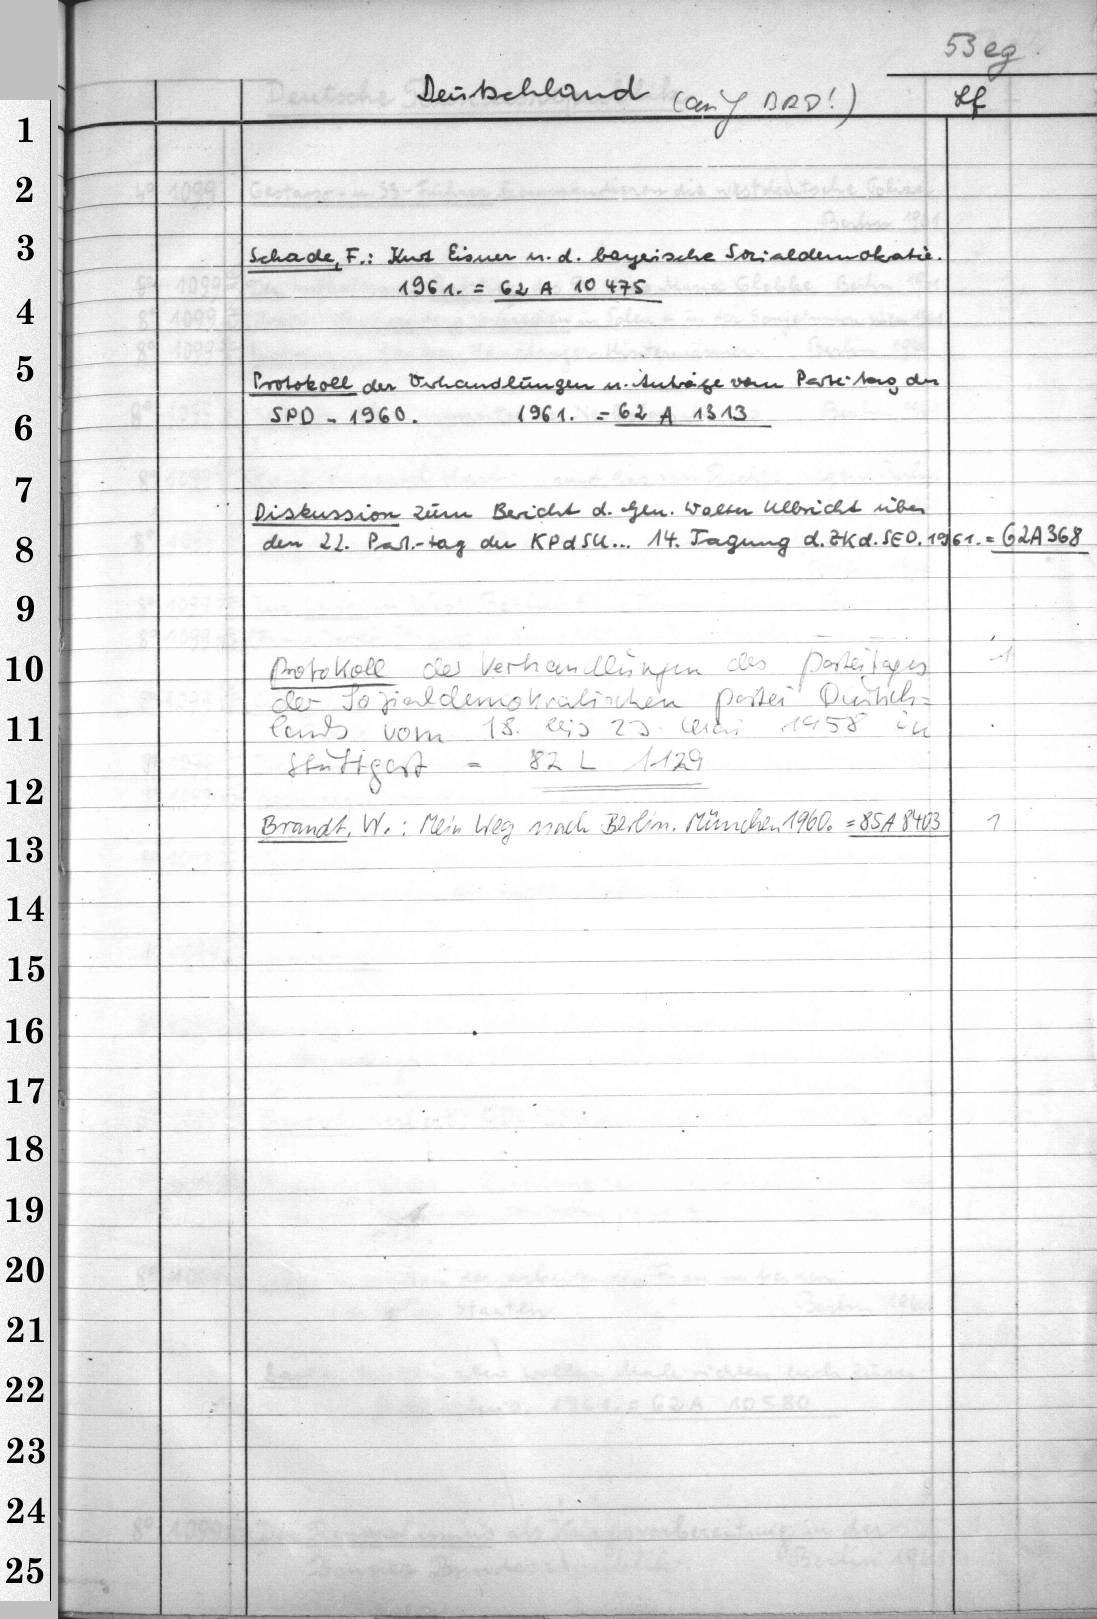 53 eg
Deutschland (auf BRD!) Lf
1
2
3 Schade, F.: Kurt Eisner u. d. bayerische Sozialdemokratie.
1961. = 62 A 10 475
4
5 Protokoll der Verhandlungen u. Anträge vom Parteitag der
6 SPD - 1960. 1961. = 62 A 1313
7
Diskussion zum Bericht d. Gen. Walter Ulbricht über
8 den 22. Part.-tag der KPdSU... 14. Tagung d. ZK d. SED. 1961. = 62A368
9
10 Protokoll der Verhandlungen des Parteitages 1
der Sozialdemokratischen Partei Deutsch=
11 lands vom 18. bis 23. Mai 1958 in
Stuttgart = 82 L 1129
12
Brandt, W.: Mein Weg nach Berlin. München 1960. = 85A8403 1
13
14
15
16
17
18
19
20
21
22
23
24
25